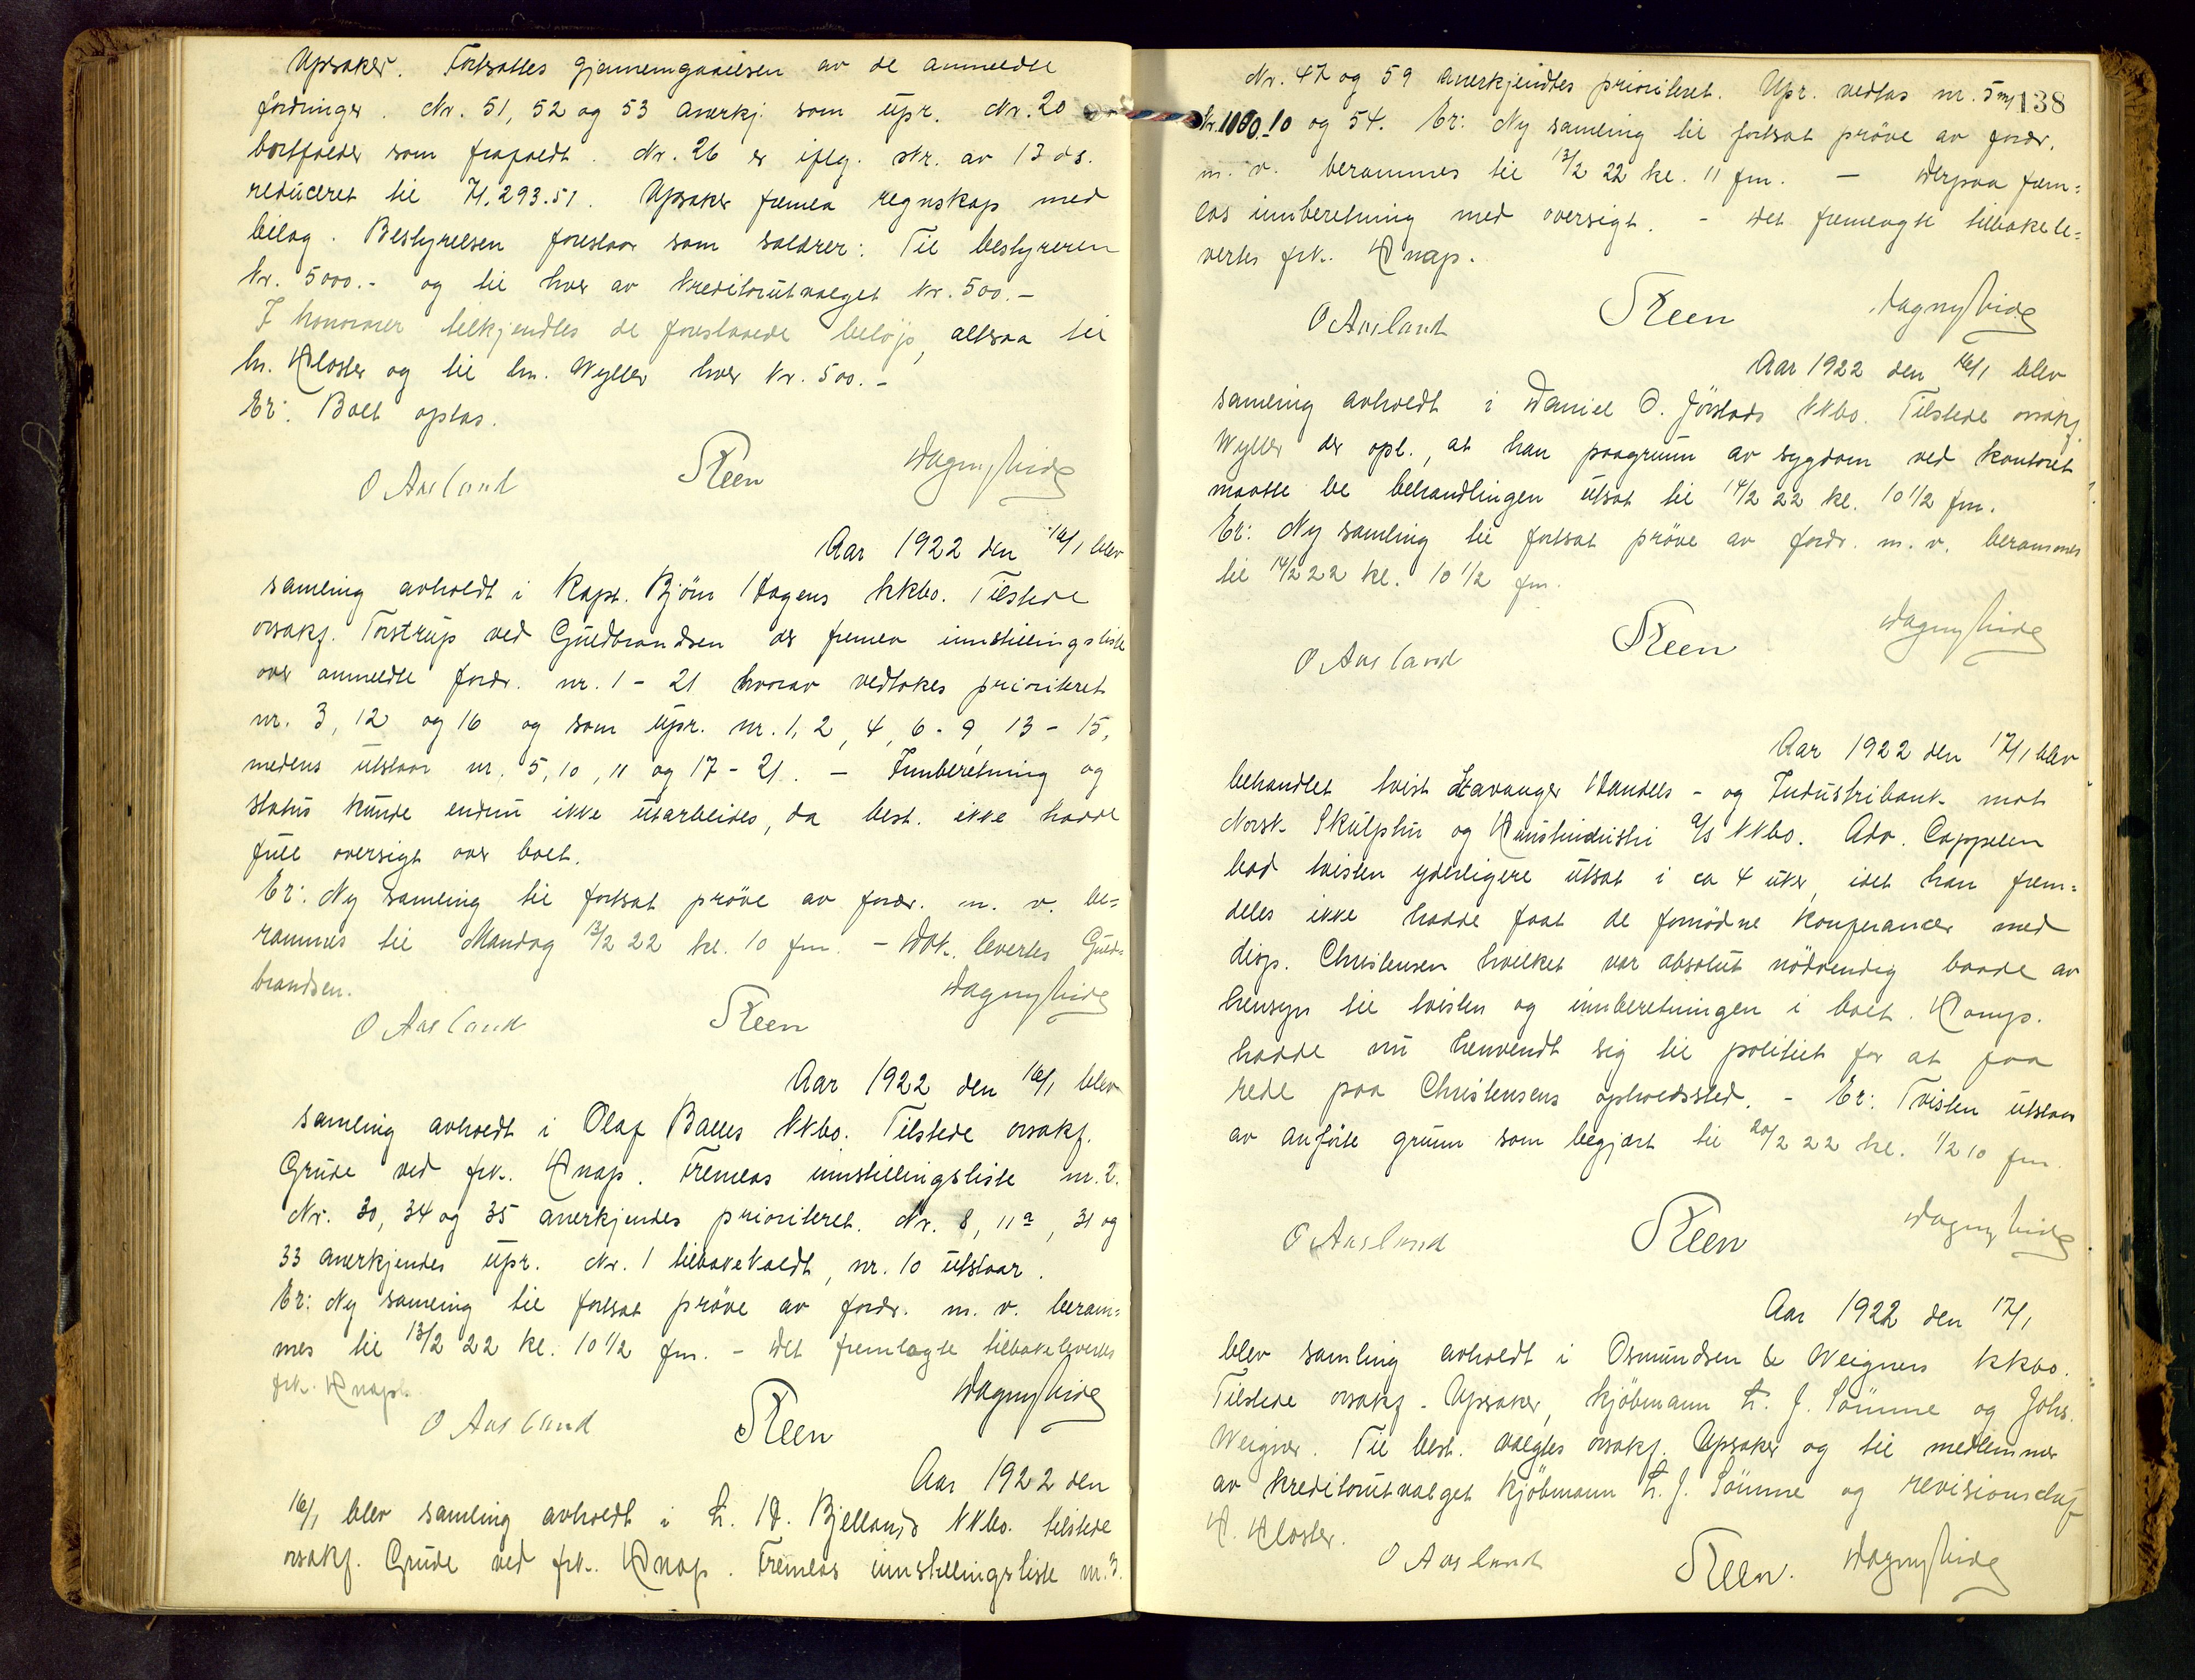 Upsaker. Fortsattes gjennemgaaelsen av de anmeldte
fordringer. Nr. 51, 52 og 53 anerkj. som upr. Nr. 20
bortfalder som frafaldt. Nr. 26 er iflg. skr. av 13 ds.
reduceret til 71.293.51. Upsaker fremla regnskap med
bilag. Bestyrelsen foreslaar som salærer: Til bestyreren
kr. 5000.- og til hver av kreditorutvalget kr. 500.-
I honorarer tilkjendtes de foreslaaede beløp, altsaa til
hr. Kloster og til hr. Wyller hver kr. 500.-
Er: Boet optas.
O Aasland Steen Dagny Lide
Aar 1922 den 16/1 blev
samling avholdt i Kapt. Bjørn Hagens kkbo. Tilstede
orsakf. Torstrup ved Guldbrandsen der fremla innstillingsliste
over anmeldte fordr. nr. 1 - 21 hvorav vedtokes prioriteret
nr. 3, 12 og 16 og som upr. nr. 1, 2, 4, 6 - 9, 13 - 15,
medens utstaar nr. 5, 10, 11 og 17 - 21. - Innberetning og
status kunde endnu ikke utarbeides, da best. ikke hadde
full oversigt over boet.
Er: Ny samling til fortsat prøve av fordr. m. v. be=
rammes til Mandag 13/2 22 kl. 10 fm. - Dok. levertes Guld=
brandsen.
O Aasland Steen Dagny Lide
Aar 1922 den 16/1 blev
samling avholdt i Olaf Balles kkbo. Tilstede orsakf.
Grude ved frk. Knap. Fremlas innstillingsliste nr. 2.
Nr. 30, 34 og 35 anerkjendes prioriteret. Nr. 8, 11a, 31 og
33 anerkjendes upr. Nr. 1 tilbakekaldt, nr. 10 utstaar.
Er: Ny samling til fortsat prøve av fordr. m. v. beram=
mes til 13/2 22 kl. 10 1/2 fm. - Det fremlagte tilbakelevertes
frk. Knap.
O Aasland Steen Dagny Lide
Aar 1922 den
16/1 blev samling avholdt i L. H. Bjellands kkbo. tilstede
orsakf. Grude ved frk. Knap. Fremlas innstillingsliste nr. 3.
138
Nr. 47 og 59 anerkjendtes prioriteret. Upr. vedtas nr. 5
kr. 1000.10 og 54. Er: Ny samling til fortsat prøve av fordr.
m. v. berammes til 13/2 22 kl. 11 fm. - Derpaa frem=
las innberetning med oversigt. - Det fremlagte tilbakele=
vertes frk. Knap.
O Aasland Steen Dagny Lide
Aar 1922 den 16/1 blev
samling avholdt i Daniel O. Jørstads kkbo. Tilstede orsakf.
Wyller der opl., at han paagrunn av sygdom ved kontoret
maatte be behandlingen utsat til 14/2 22 kl. 10 1/2 fm.
Er: Ny samling til fortsat prøve av fordr. m. v. berammes
til 14/2 22 kl. 10 1/2 fm.
O Aasland Steen Dagny Lide
Aar 1922 den 17/1 blev
behandlet tvist Stavanger Handels - og Industribank mot
Norsk Skulptur og Kunstindustri a/s kkbo. Adv. Cappelen
bad tvisten yderligere utsat i ca 4 uker, idet han frem=
deles ikke hadde faat de fornødne konferancer med
disp. Christensen hvilket var absolut nødvendig baade av
hensyn til tvisten og innberetningen i boet. Komp.
hadde nu henvendt sig til politiet for at faa
rede paa Christensens opholdssted. - Er: Tvisten utstaar
av anførte grunn som begjært til 20/2 22 kl. 1/2 10 fm.
O Aasland Steen Dagny Lide
Aar 1922 den 17/1
blev samling avholdt i Osmundsen & Weigners kkbo.
Tilstede orsakf. Upsaker, kjøbmann L. J. Sømme og Johs.
Weigner. Til best. valgtes orsakf. Upsaker og til medlemmer
av kreditorutvalget kjøbmann L. J. Sømme og revisionschef
K. Kloster.
O Aasland Steen. Dagny Lide